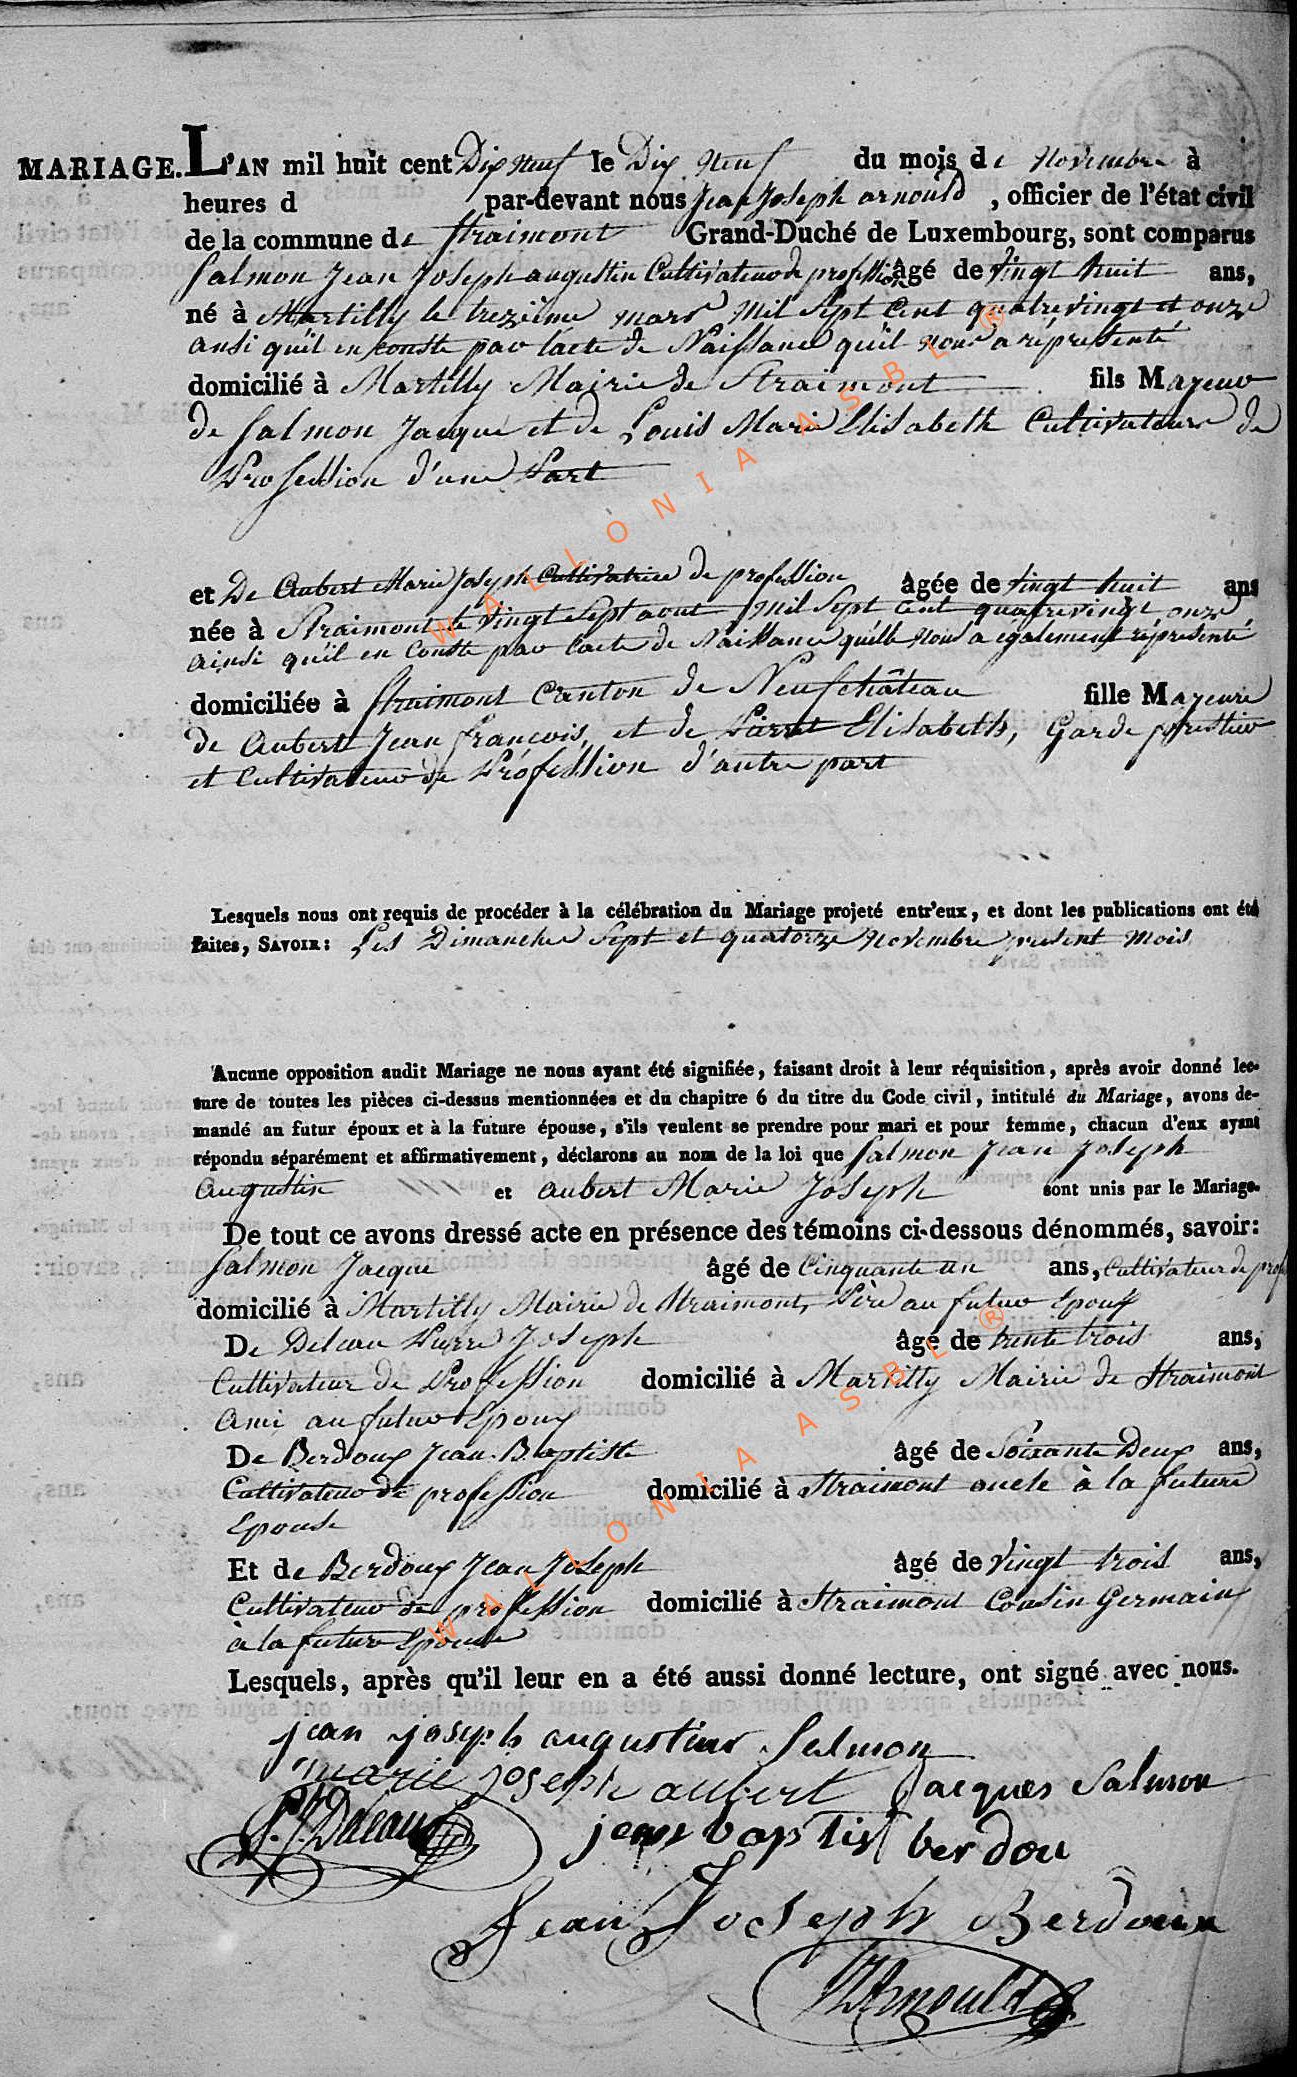 MARIAGE. L'AN mil huit cent Dix Neuf le Dix Neuf du mois de Novembre à
heures d par-devant nous Jean Joseph arnould, officier de l'état civil
de la commune de Straimont Grand-Duché de Luxembourg, sont comparus
Salmon Jean Joseph augustin Cultivateur de profession âgé de Vingt huit ans,
né à Martilly le trezième mars mil Sept Cent quatrevingt et onze
ansi qu'il en conste par l'acte de Naissance qu'il nous a réprésenté
domicilié à Martilly Mairie de Straimont fils Majeur
de Salmon Jacque et de Louis Marie Elisabeth Cultivateurs de
Profession d'une Part
et De Aubert Marie Joseph Cultivatrice de profession âgée de Vingt huit ans
née à Straimont le Vingt Sept aout Mil Sept Cent quatrevingt onze
ainsi qu'il en Conste par l'acte de Naissance quelle Nous a egalement réprésenté
domiciliée à Straimont Canton de Neufchâteau fille Majeure
de Aubert Jean François, et de Pierret Elisabeth, Garde forestier
et Cultivateur de Proféssion d'autre part
Lesquels nous ont requis de procéder à la célébration du Mariage projeté entr'eux, et dont les publications ont été
faites, SAVOIR: Les Dimanches Sept et quatorze Novembre present mois
Aucune opposition audit Mariage ne nous ayant été signifiée, faisant droit à leur réquisition, après avoir donné lec-
ture de toutes les pièces ci-dessus mentionnées et du chapitre 6 du titre du Code civil, intitulé du Mariage, avons de-
mandé au futur époux et à la future épouse, s'ils veulent se prendre pour mari et pour femme, chacun d'eux ayant
répondu séparément et affirmativement, déclarons au nom de la loi que Salmon Jean Joseph
Augustin et Aubert Marie Joseph sont unis par le Mariage.
De tout ce avons dressé acte en présence des témoins ci-dessous dénommés, savoir:
Salmon Jacque âgé de Cinquante un ans, Cultivateur de prof
domicilié à Martilly Mairie de Straimont, Père au futur Epoux
De Deleau Pierre Joseph âgé de trente trois ans,
Cultivateur de Profession domicilié à Martilly Mairie de Straimont
Ami au futur Epoux
De Berdoux Jean Baptiste âgé de Soixante Deux ans,
Cultivateur de profession domicilié à Straimont oncle à la future
Epouse
Et de Berdoux Jean Joseph âgé de Vingt trois ans,
Cultivateur de profession domicilié à Straimont Cousin Germain
à la future Epouse
Lesquels, après qu'il leur en a été aussi donné lecture, ont signé avec nous.
jean joseph augustin Salmon
marie joseph aubert Jacques Salmon
P. J. Deleau jean baptist berdou
Jean Joseph Berdoux
JJArnould
WALLONIA ASBL ®
WALLONIA ASBL ®